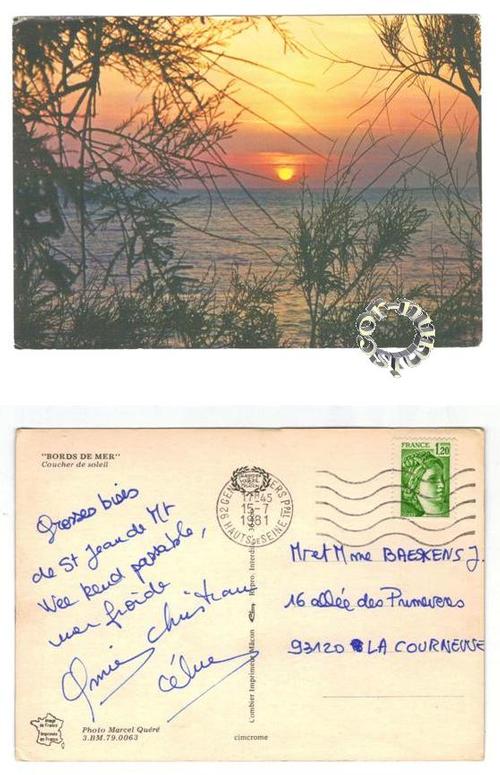 COT-NUMIS.COM
"BORDS DE MER"
Coucher de soleil
Grosses bises
de St Jean de Mt
Wee kend passable,
mer froide
Christian
Céline
Image de France
Imprimée en France
Photo Marcel Quéré
3.BM.79.0063
Combier Imprimeur Mâcon
Repro. Interdite
cimcrome
FRANCE
1,20
17H45
15-7
1981
HAUTS DE SEINE
Mr et Mme BAESKENS J.
16 allée des Primevères
93120 LA COURNEUVE